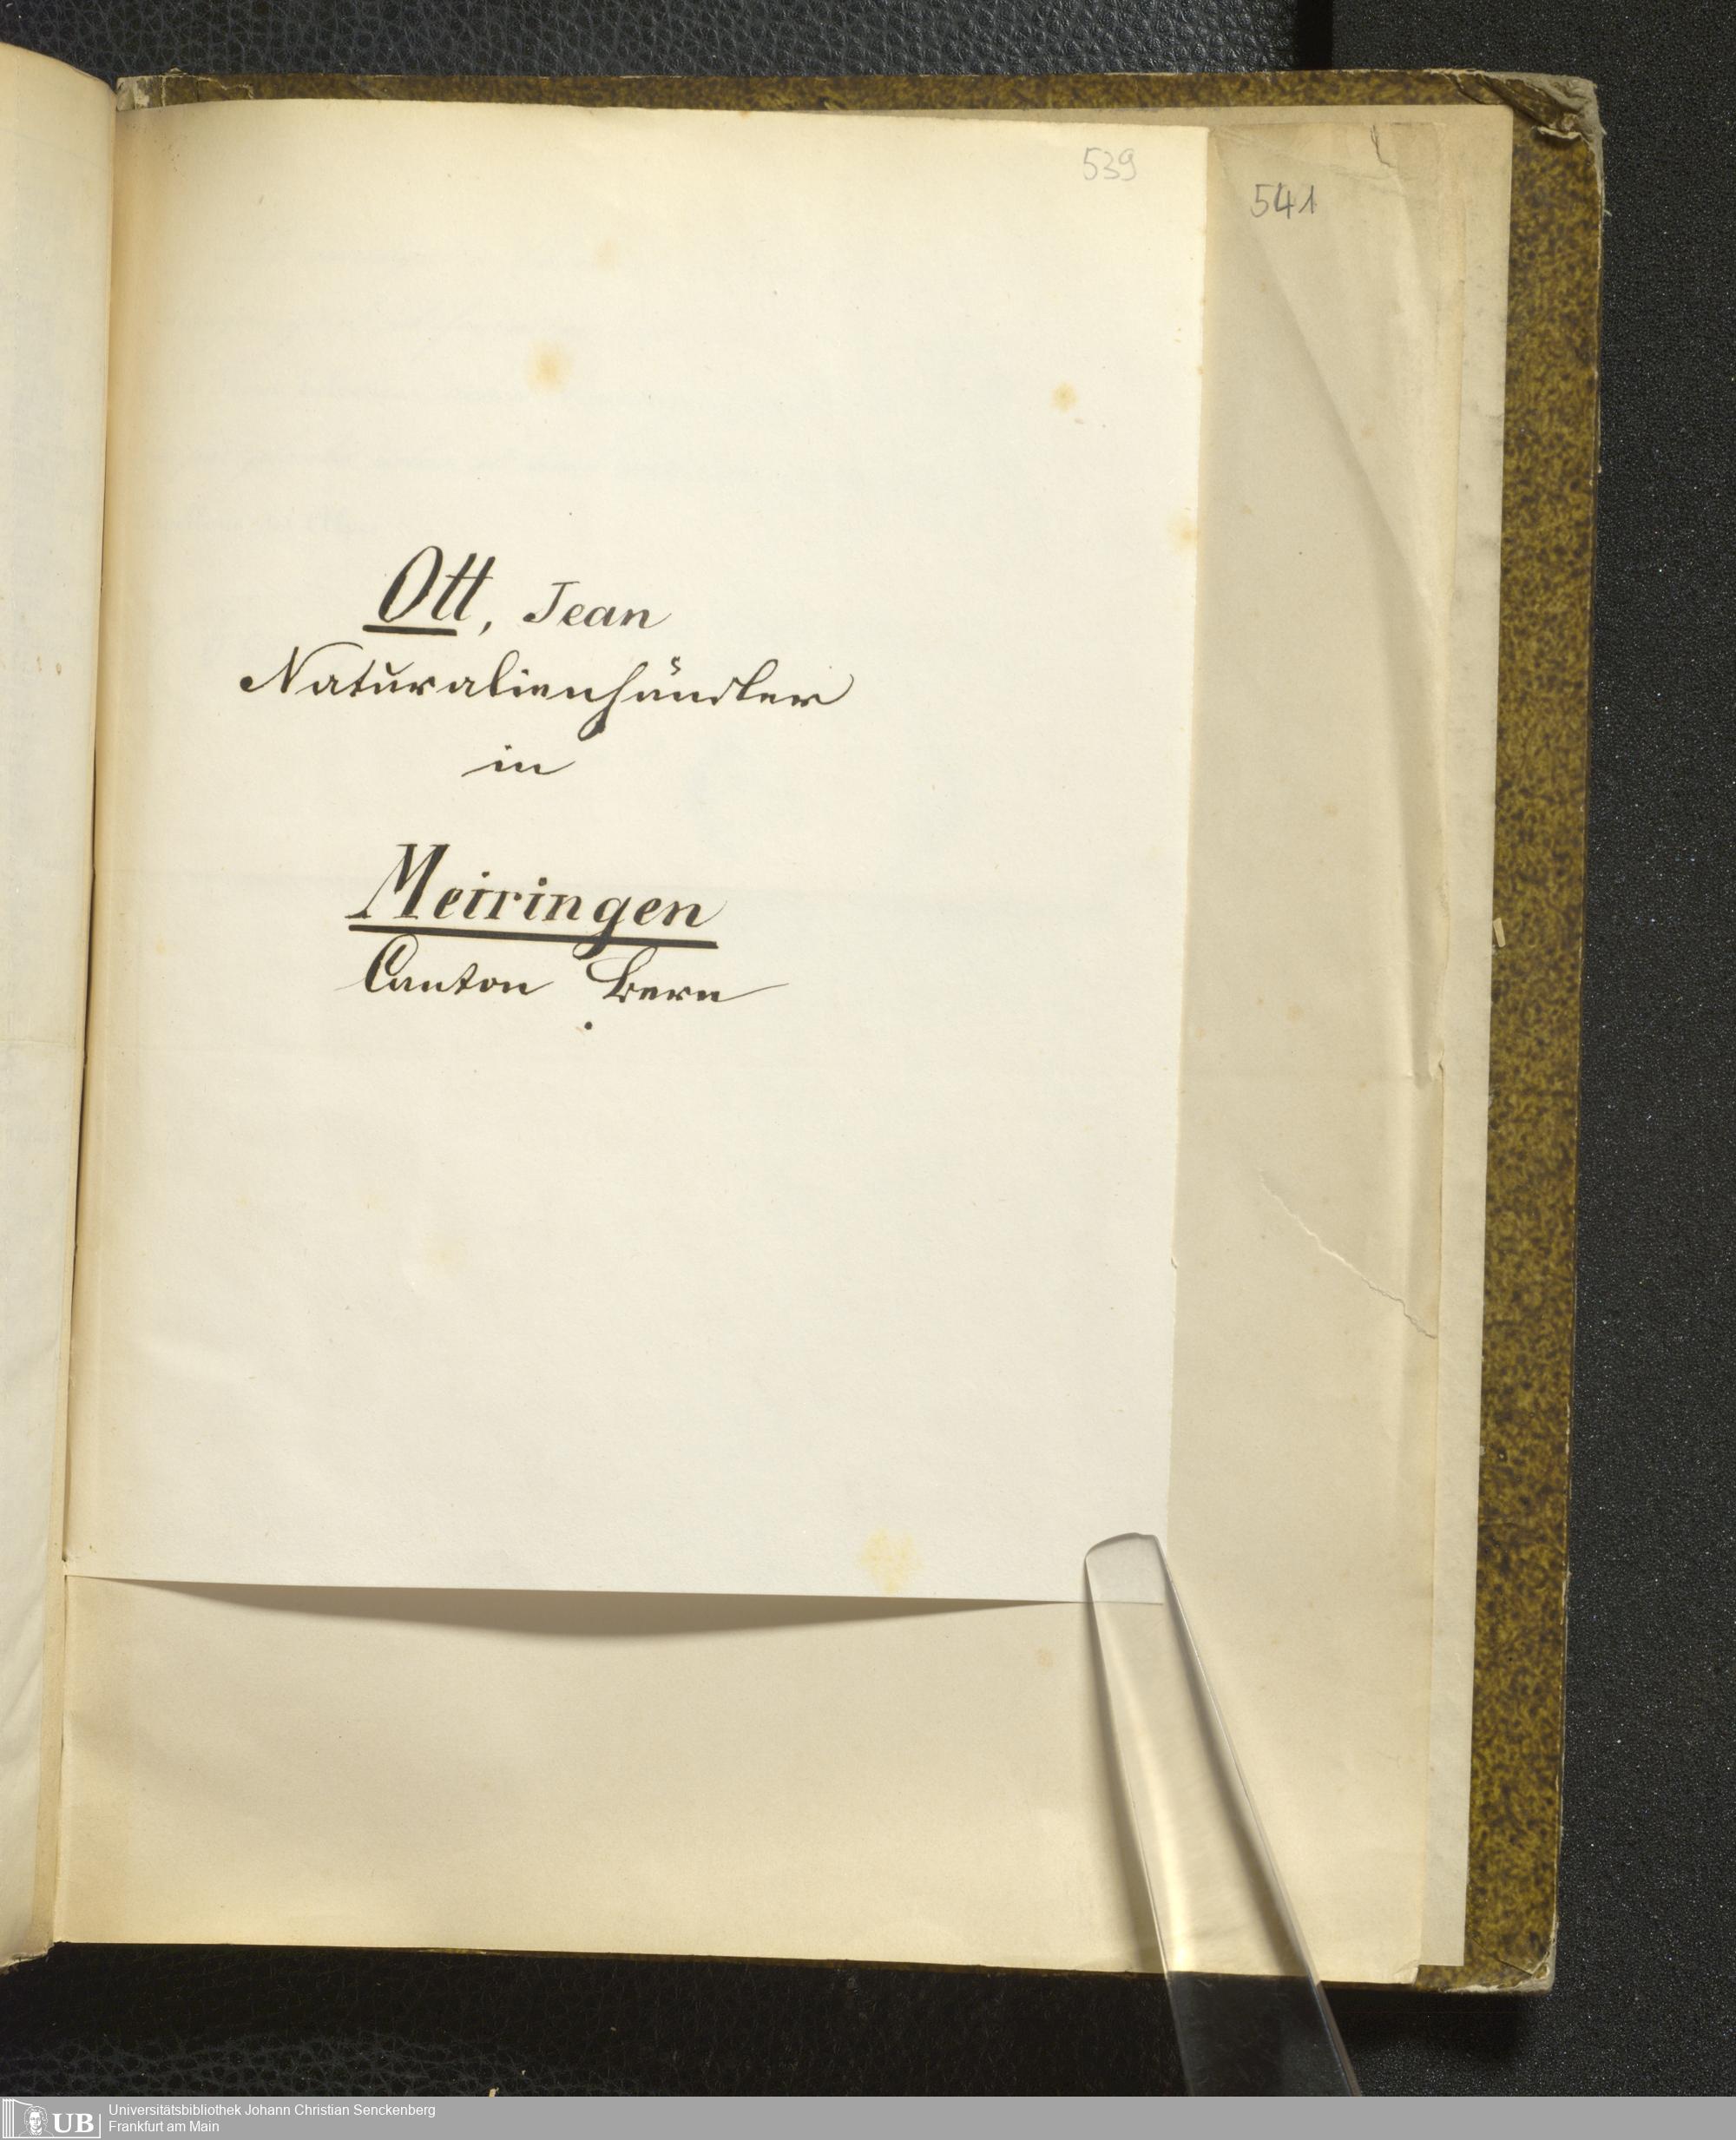 539
541
Ott, Jean
Naturalienhändler
in
Meiringen
Canton Bern
UB
Universitätsbibliothek Johann Christian Senckenberg
Frankfurt am Main